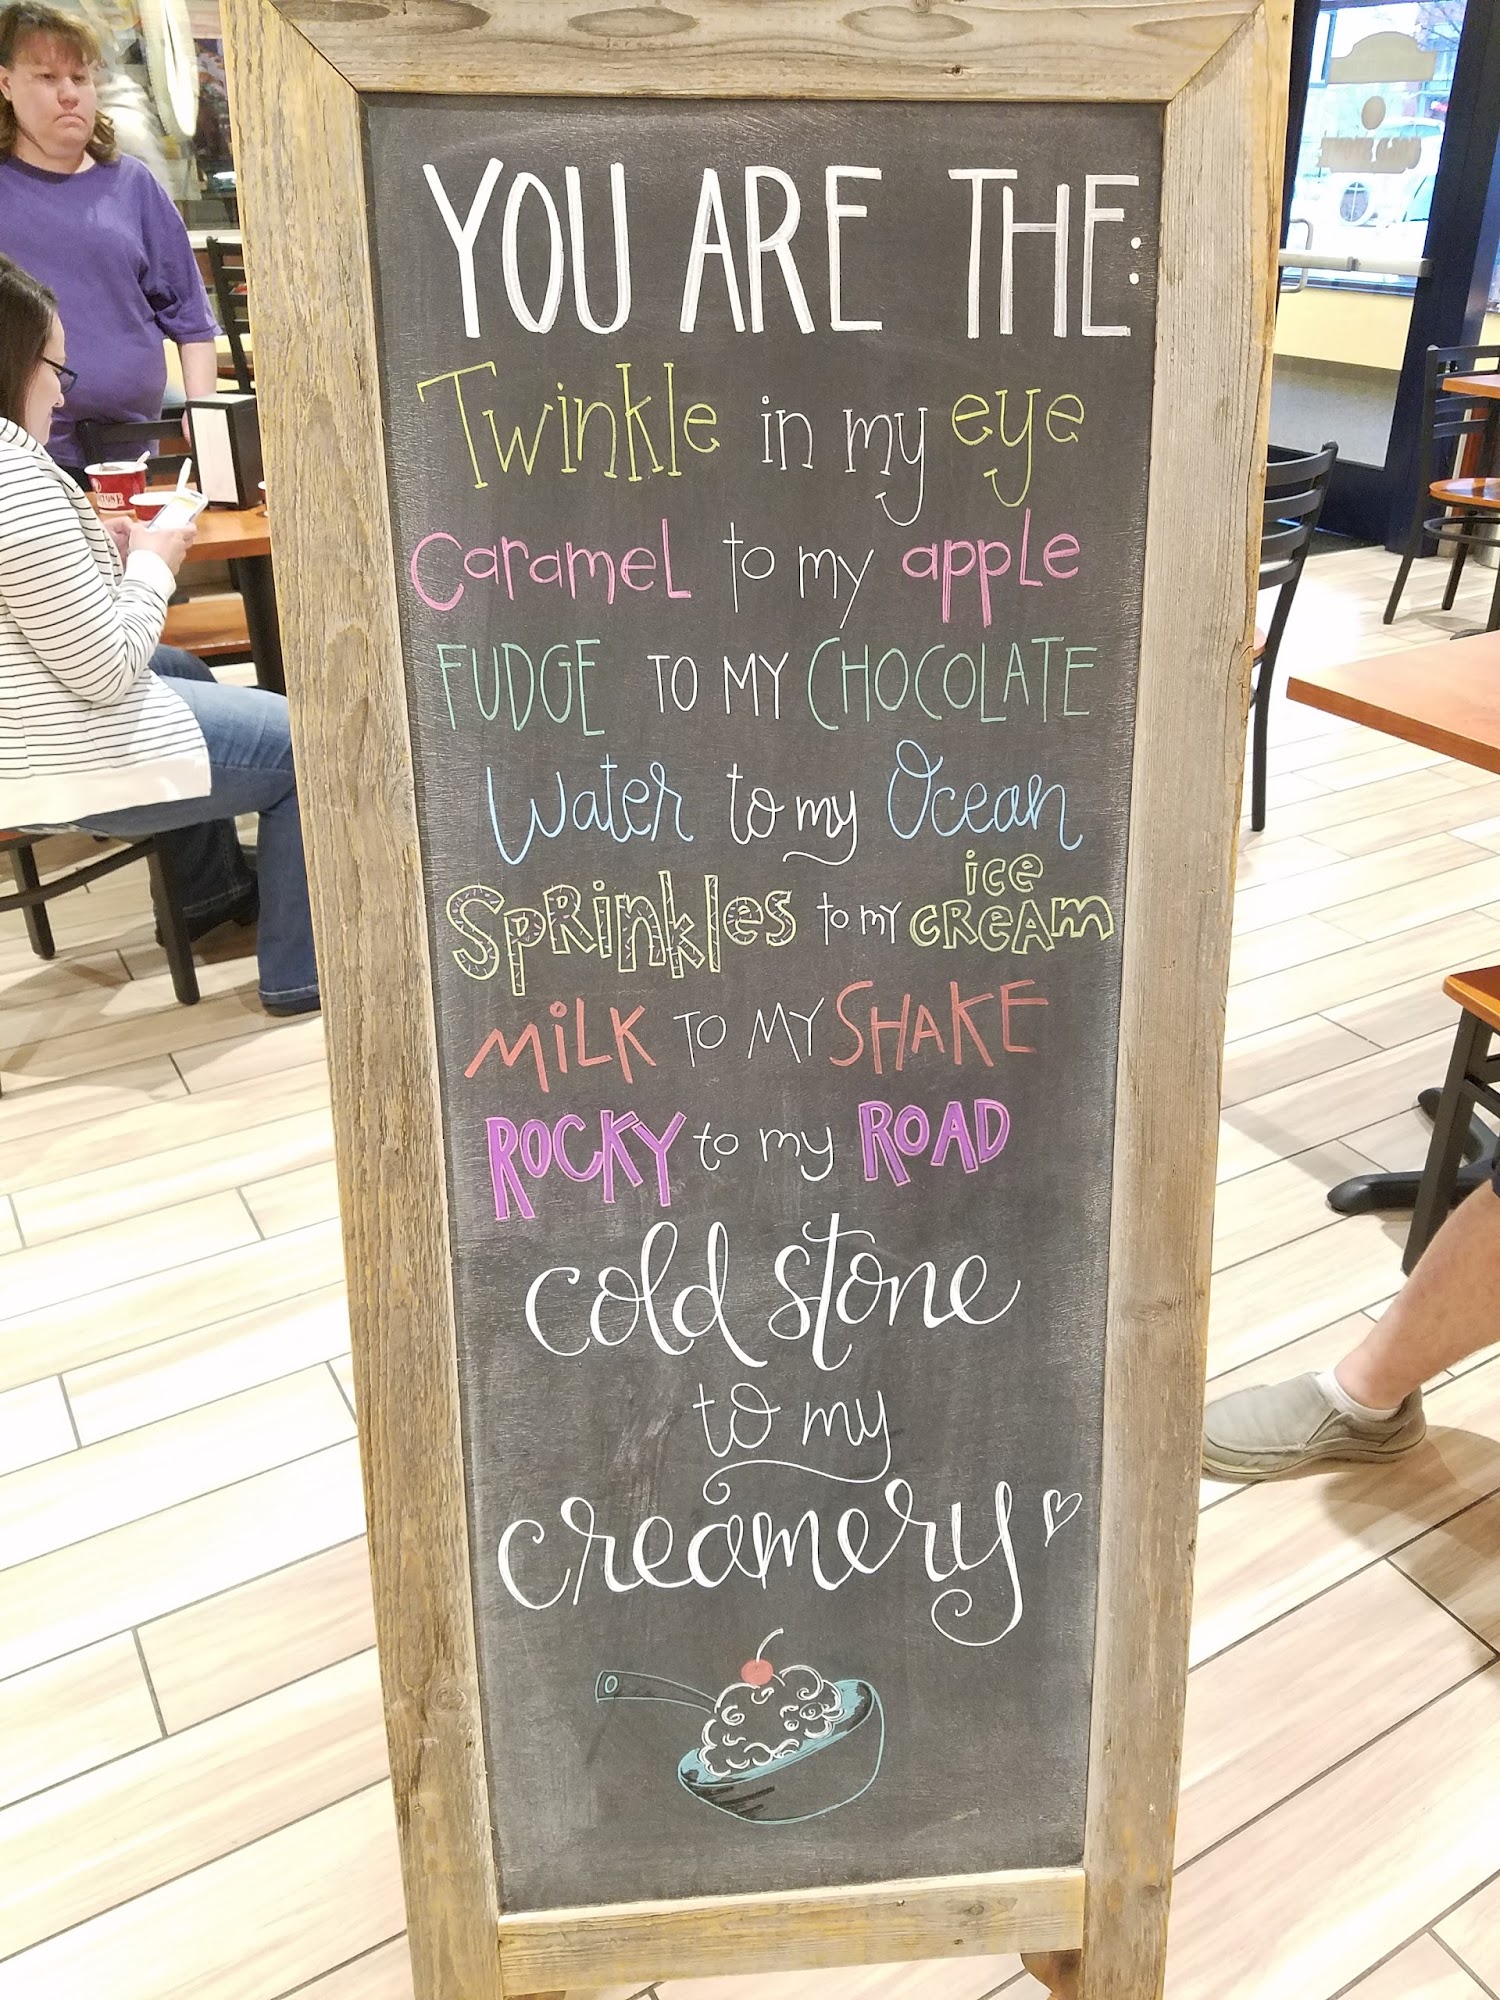 YOU ARE THE:
Twinkle in my eye
Caramel to my apple
FUDGE TO MY CHOCOLATE
Water to my Ocean
SPRinkles to my ice CReAm
MiLK TO MY SHAKE
ROCKY to my ROAD
cold stone
to my
creamery